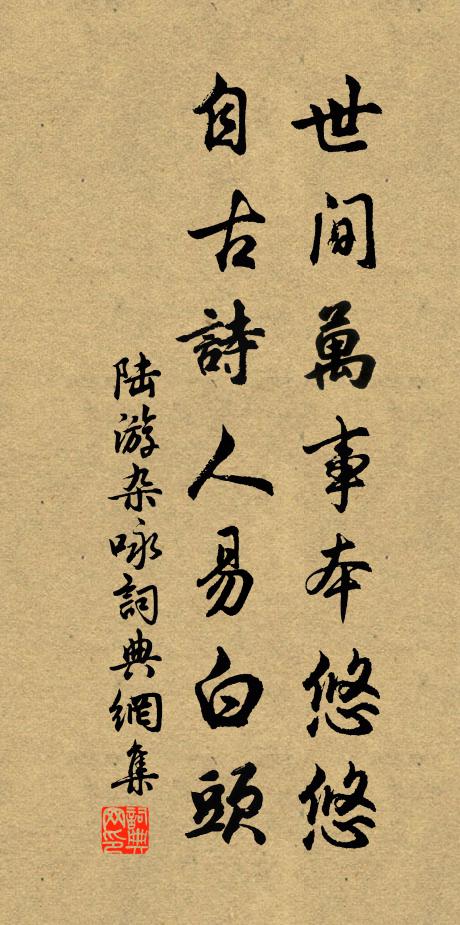 世间萬事本悠悠
自古詩人易白頭
陆游杂咏詞典網集
詞典网印